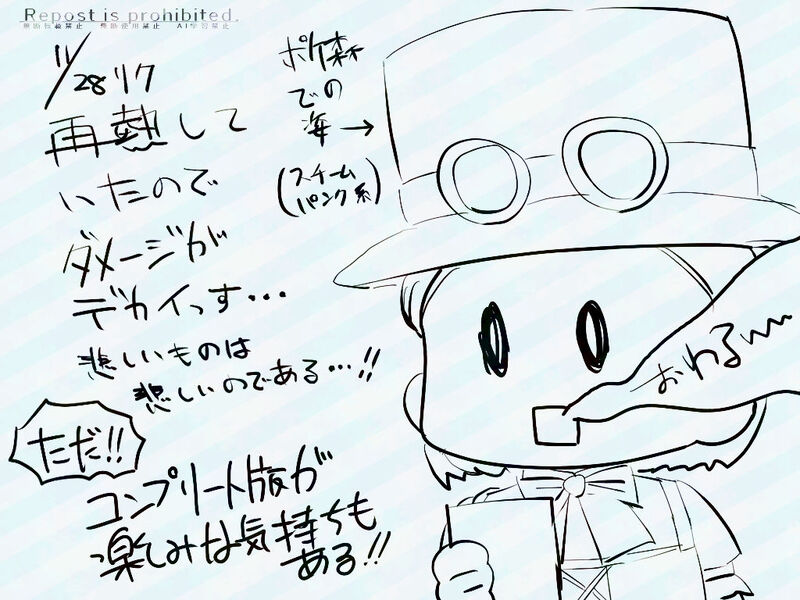 Repost is prohibited.
無断転載禁止 無断使用禁止 AI学習禁止
11/28リク
再熱して
いたので
ダメージが
デカイっす…
悲しいものは
悲しいのである…!!
ただ!!
コンプリート版が
楽しみな気持ちも
ある!!
ポケ森
での
海→
(スチーム
パンク系)
おわる